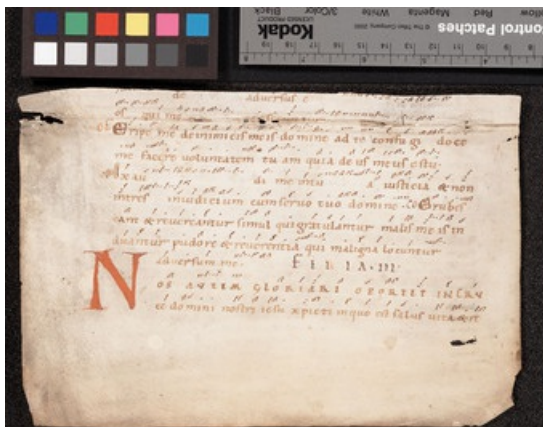 Kodak
LICENSED PRODUCT
Black
3/Color
White
Magenta
Red
Control Patches
© The Tiffen Company, 2000
de adversus
os. qui me
Eripe me de inimicis meis domine ad te confugi doce
me facere voluntatem tuam quia deus meus es tu.
Exau di me in tu a iusticia & non
intres in iudicium cum servo tuo domine. Erubes
cant & revereantur simul qui gratulantur malis meis in
duantur pudore & reverentia qui maligna locuntur
adversum me. FERIA III
NOS AUTEM GLORIARI OPORTET IN CRU
ce domini nostri iesu xpicti in quo est salus vita &